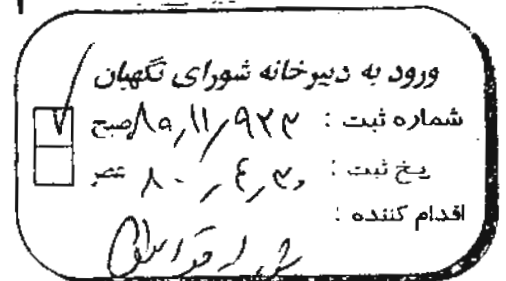 ورود به دبیرخانه شورای نگهبان
شماره ثبت : ۸۰٫۱۱٫۹۲۳ صبح
یخ ثبت : ۸۰٫۴٫۳۰ عصر
اقدام کننده :